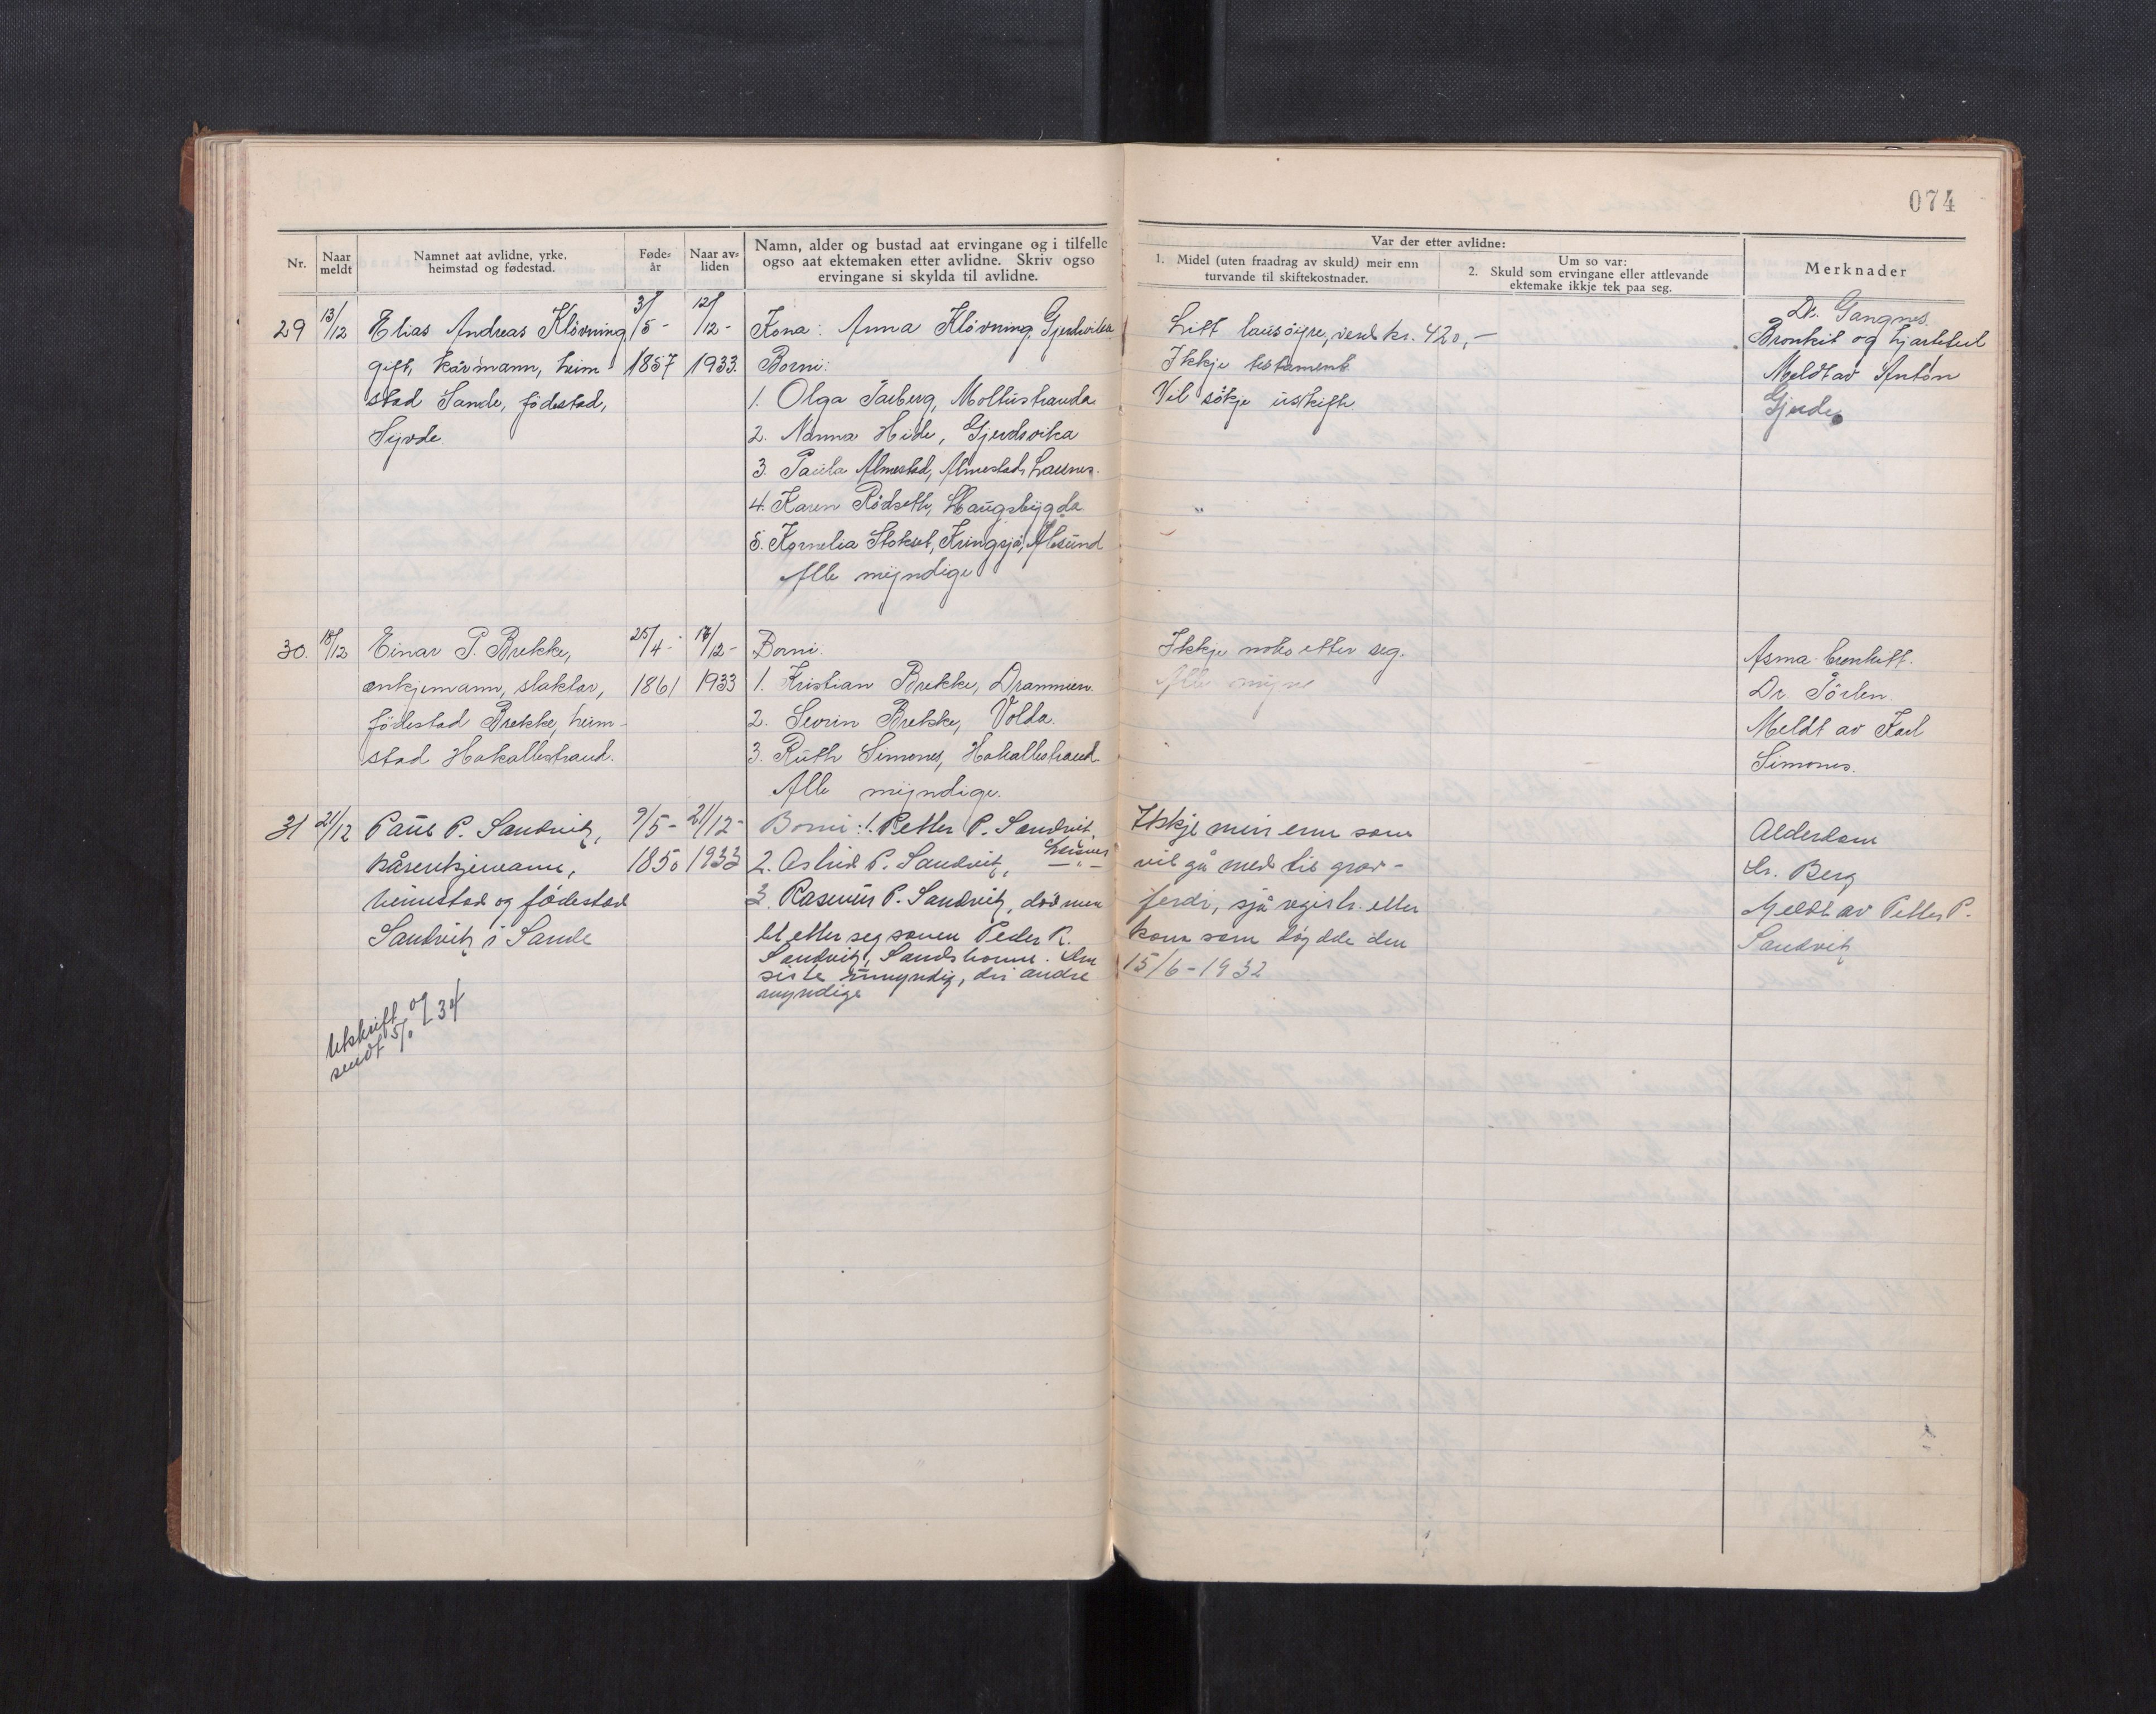 074
Nr.
Naar meldt
Namnet aat avlidne, yrke, heimstad og fødestad.
Føde-år
Naar av-liden
Namn, alder og bustad aat ervingane og i tilfelle
ogso aat ektemaken etter avlidne. Skriv ogso
ervingane si skylda til avlidne.
Var der etter avlidne:
1. Midel (uten fraadrag av skuld) meir enn
turvande til skiftekostnader.
Um so var:
2. Skuld som ervingane eller attlevande
ektemake ikkje tek paa seg.
Merknader
29 13/12 Elias Andreas Klövning, 31/5- 12/12-
gift, kårmann, heim 1857 1933.
stad Sande, födestad,
Syvde.
Kona: Anna Klövning, Gjerdsvika
Borni:
1. Olga Taeberg, Moltustranda
2. Nanna Hide, Gjerdsvika
3. Paula Almestad, Almestad, Larsnes.
4. Karen Rödseth, Haugsbygda
5. Kornelia Stokset, Kringsjå, Ålesund
Alle myndige
Litt lausöyre, verd kr. 420,-
Ikkje testament
Vil sökje uskift.
Dr. Gangnes.
Bronkit og hjartefeil
Meldt av Anton
Gjerde
30. 18/12 Einar P. Brekke, 25/4- 17/12-
enkjemann, slaktar, 1861 1933
födestad Brekke, heim-
stad Hakallestrand.
Borni:
1. Kristian Brekke, Drammen.
2. Sevrin Brekke, Volda.
3. Ruth Simones, Hakallestrand
Alle myndige.
Ikkje noko etter seg.
Asma bronkitt.
Dr. Törlen.
Meldt av Karl
Simones.
31 21/12 Paul P. Sandvik, 9/5- 21/12-
kårenkjemann, 1850 1933
heimstad og födestad
Sandvik i Sande
Borni: 1. Petter P. Sandvik,
Larsnes
2. Astrid P. Sandvik, — " —
3. Rasmus P. Sandvik, död men
let etter seg sonen Peder R.
Sandvik, Sandshamn. Den
siste umyndig, dei andre
myndige
Ikkje meir enn som
vil gå med til grav-
ferdi, sjå registr. etter
kona som döydde den
15/6-1932
Alderdom
Dr. Berg
Meldt av Petter P.
Sandvik
Utskrift og
sendt 5/ 34